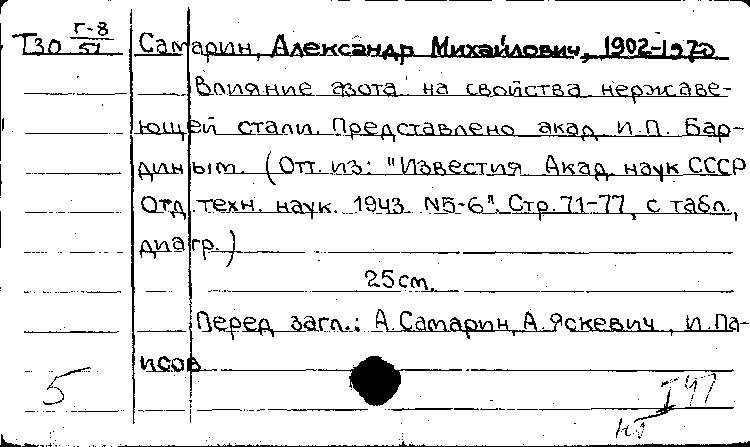 Т30 Г-8/51 Самарин, Александр Михайлович, 1902-1970
Влияние азота на свойства нержаве-
ющей стали. Представлено акад. И.П. Бар-
диным. (Отт. из: "Известия Акад. наук СССР
Отд. техн. наук. 1943 N5-6". Стр. 71-77, с табл.,
диагр.)
25 см.
Перед загл.: А. Самарин, А. Яскевич, И. Па-
исов
5
I 47